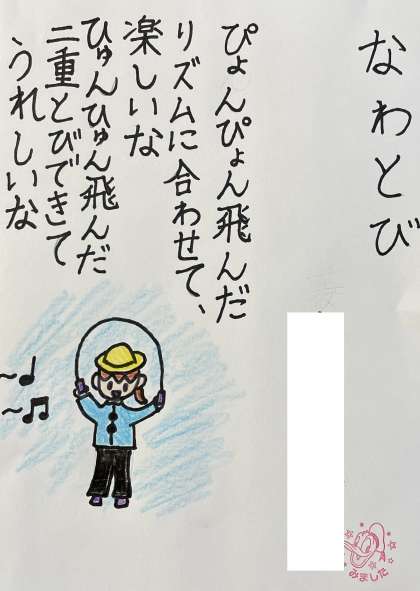 なわとび
ぴょんぴょん飛んだ
リズムに合わせて、
楽しいな
ひゅんひゅん飛んだ
二重とびできて
うれしいな
みました